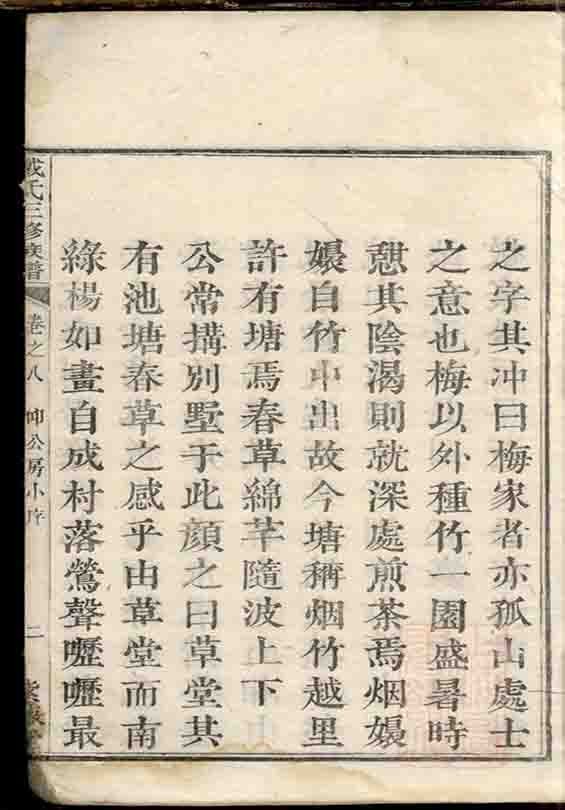 之字其冲曰梅家者亦狐山處士
之意也梅以外種竹一園盛暑時
憇其陰渴則就深處煎茶焉烟嬝
嬝自竹中出故今塘稱烟竹越里
許有塘焉春草綿芊隨波上下
公常搆別墅于此顔之曰草堂其
有池塘春草之感乎由草堂而南
綠楊如畫自成村落鶯聲嚦嚦最
氏三修族譜 卷之八 仲公房小序 二